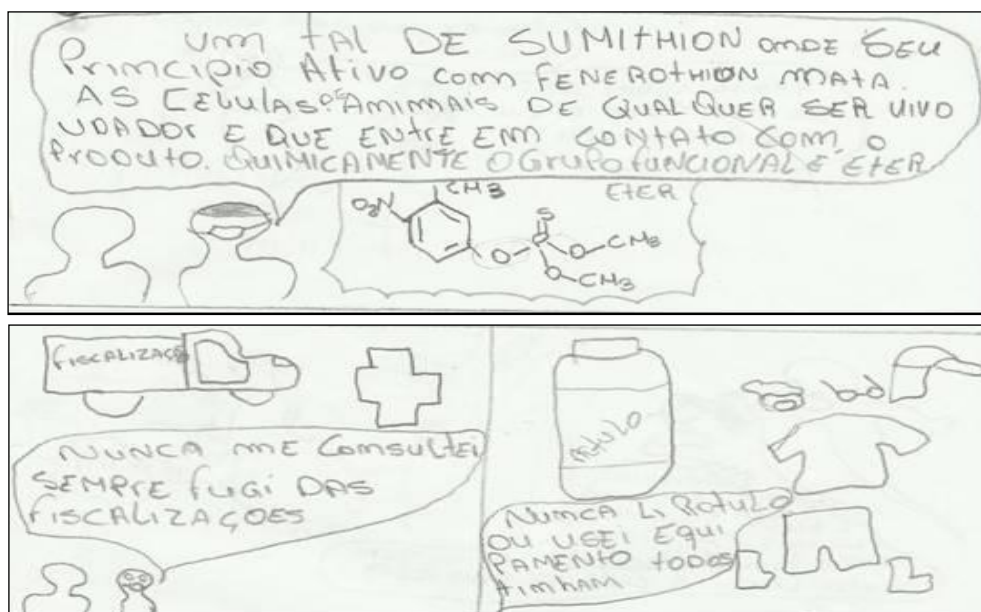 UM TAL DE SUMITHION ONDE SEU
PRINCIPIO ATIVO COM FENEROTHION MATA
AS CELULAS DE ANIMAIS DE QUALQUER SER VIVO
VOADOR E QUE ENTRE EM CONTATO COM O
PRODUTO. QUIMICAMENTE O GRUPO FUNCIONAL E ETER
ETER
CH3
O2N
S
O P O CH3
O CH3
FISCALIZAÇÃO
NUNCA ME CONSULTEI
SEMPRE FUGI DAS
FISCALIZAÇOES
NUNCA LI ROTULO
OU USEI EQUI
PAMENTO TODOS
TINHAM